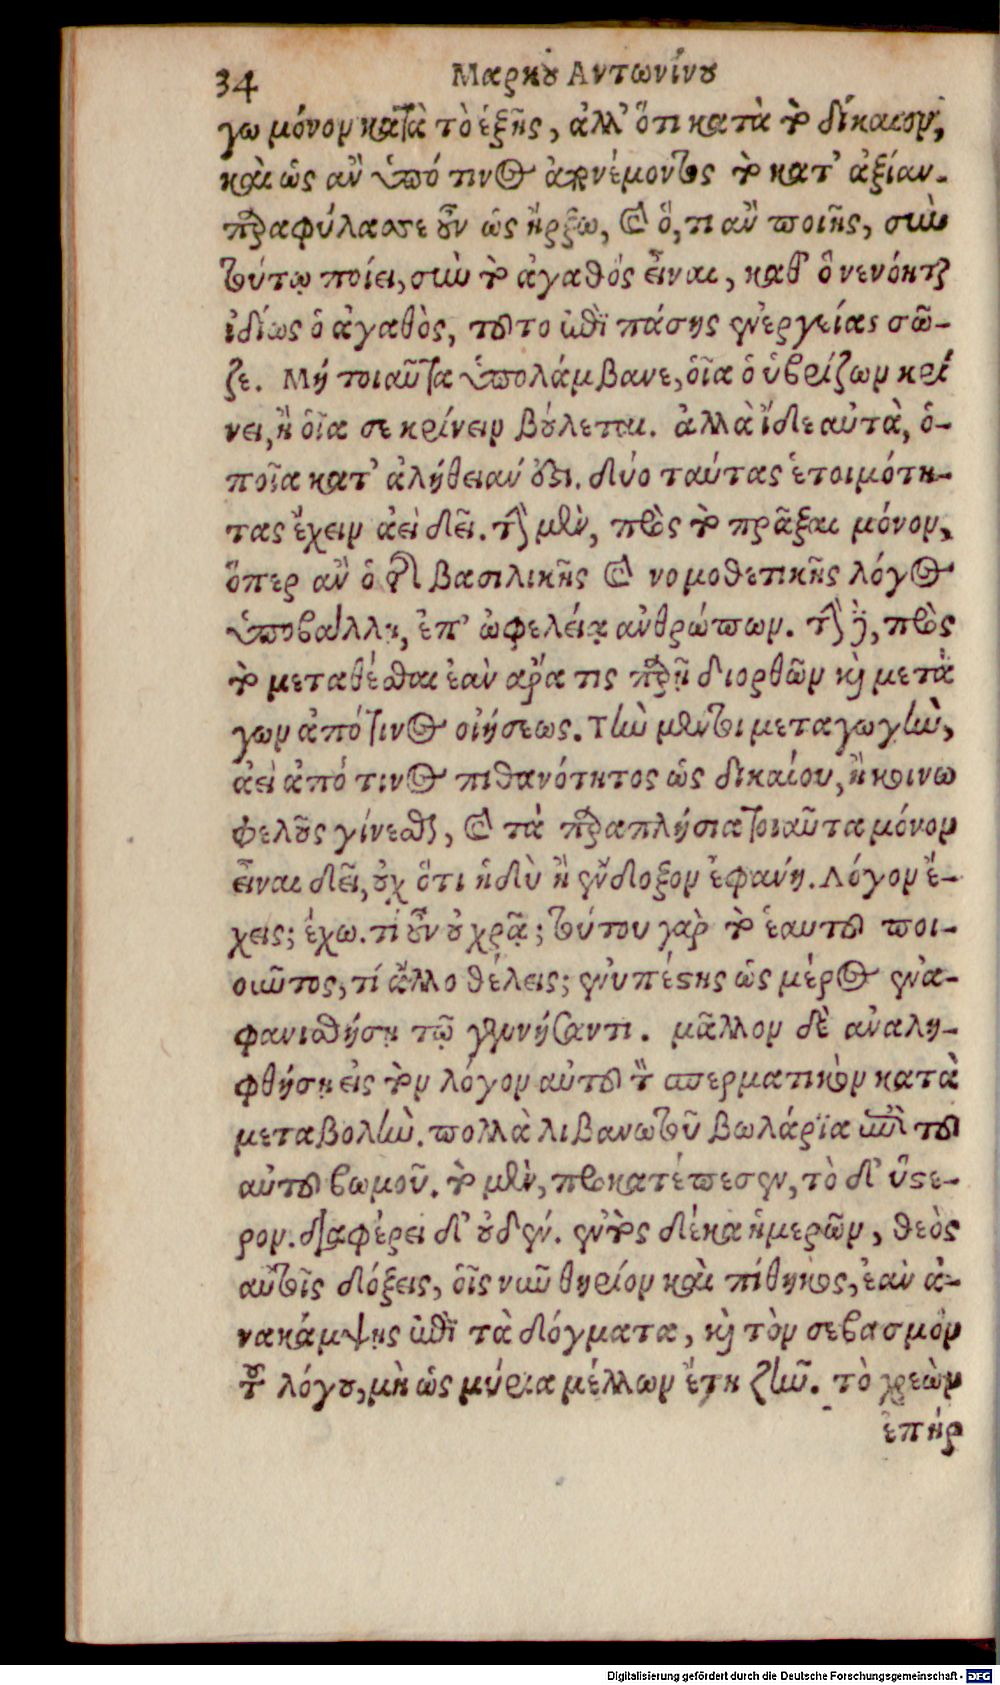 34 Μαρκου Αντωνίνου
γω μόνον κατὰ τὸ ἑξῆς, ἀλλ' ὅτι κατὰ τὸ δίκαιον,
καὶ ὡς ἂν ὑπό τινος ἀπονέμοντος τὸ κατ' ἀξίαν.
παραφύλασσε οὖν ὡς ἤρξω, καὶ ὅ, τι ἂν ποιῇς, σὺν
τούτῳ ποίει, σὺν τὸ ἀγαθός εἶναι, καθ' ὃ νενόηται
ἰδίως ὁ ἀγαθὸς, τοῦτο ἐπὶ πάσης ἐνεργείας σῶ-
ζε. Μή τοιαῦτα ὑπολάμβανε, οἷα ὁ ὑβρίζων κρί
νει, ἢ οἷα σε κρίνειν βούλεται. ἀλλὰ ἴδε αὐτὰ, ὁ-
ποῖα κατ' ἀλήθειαν ἐστι. δύο ταύτας ἑτοιμότη-
τας ἔχειν ἀεὶ δεῖ. τὴν μὲν, πρὸς τὸ πρᾶξαι μόνον,
ὅπερ ἂν ὁ τῆς βασιλικῆς καὶ νομοθετικῆς λόγος
ὑποβάλλῃ, ἐπ' ὠφελείᾳ ἀνθρώπων. τὴν δὲ, πρὸς
τὸ μεταθέσθαι ἐὰν ἄρα τις παρῇ διορθῶν καὶ μετά
γων ἀπό τινος οἰήσεως. Τὴν μέντοι μεταγωγὴν,
ἀεὶ ἀπό τινος πιθανότητος ὡς δικαίου, ἢ κοινω
φελοῦς γίνεσθαι, καὶ τὰ παραπλήσια τοιαῦτα μόνον
εἶναι δεῖ, οὐχ ὅτι ἡδὺ ἢ ἔνδοξον ἐφάνη. Λόγον ἔ-
χεις; ἔχω. τί οὖν οὐ χρᾷ; τούτου γὰρ τὸ ἑαυτοῦ ποι-
οιῶτος, τί ἄλλο θέλεις; ἐνυπέστης ὡς μέρος ἐνα-
φανισθήσῃ τῷ γεννήσαντι. μᾶλλον δὲ ἀναλη-
φθήσῃ εἰς τὸν λόγον αὐτοῦ τὸν σπερματικὸν κατὰ
μεταβολὴν. πολλὰ λιβανωτοῦ βωλάρϊα ἐπὶ τοῦ
αὐτοῦ βωμοῦ. τὸ μὲν, προκατέπεσεν, τὸ δ' ὕστε-
ρον. διαφέρει δ' οὐδέν. ἐντὸς δέκα ἡμερῶν, θεὸς
αὐτοῖς δόξεις, οἷς νῦν θηρίον καὶ πίθηκος, ἐὰν ἀ-
νακάμψῃς ἐπὶ τὰ δόγματα, καὶ τὸν σεβασμὸν
τοῦ λόγου, μὴ ὡς μύρια μέλλων ἔτη ζῆν. τὸ χρεὼν
ἐπήρ
Digitalisierung gefördert durch die Deutsche Forschungsgemeinschaft - DFG